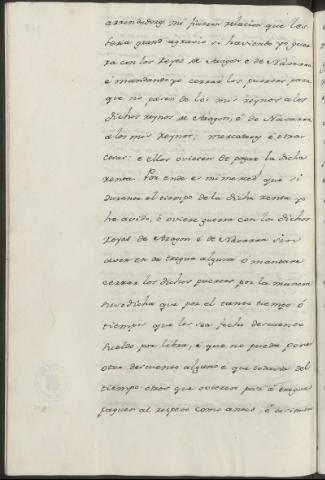 arrendadores mi fisieron relacion que les
seria grand agravio si haviendo yo guer
ra con los Reyes de Aragon e de Navarra
é mandando yo cerrar los puertos para
que no pasen de los mis reynos a los
dichos reynos de Aragon, é de Navarra
a los mis Reynos, mercaderias é otras
cosas: e ellos oviesen de pagar la dicha
renta. Por ende es mi merced que si
durante el tiempo de la dicha renta yo
he avido, ó oviere guerra con los dichos
Reyes de Aragon é de Navarra sin
aver en tregua alguna ó mandare
cerrar los dichos puertos por la manera
susodicha que por el tanto tiempo ó
tiempos que les sea fecho descuento
sueldo por libra, é que no pueda poner
otro descuento alguno é que todavia del
tiempo otros que oviere paz é tregua
paguen al respeto como antes, ó